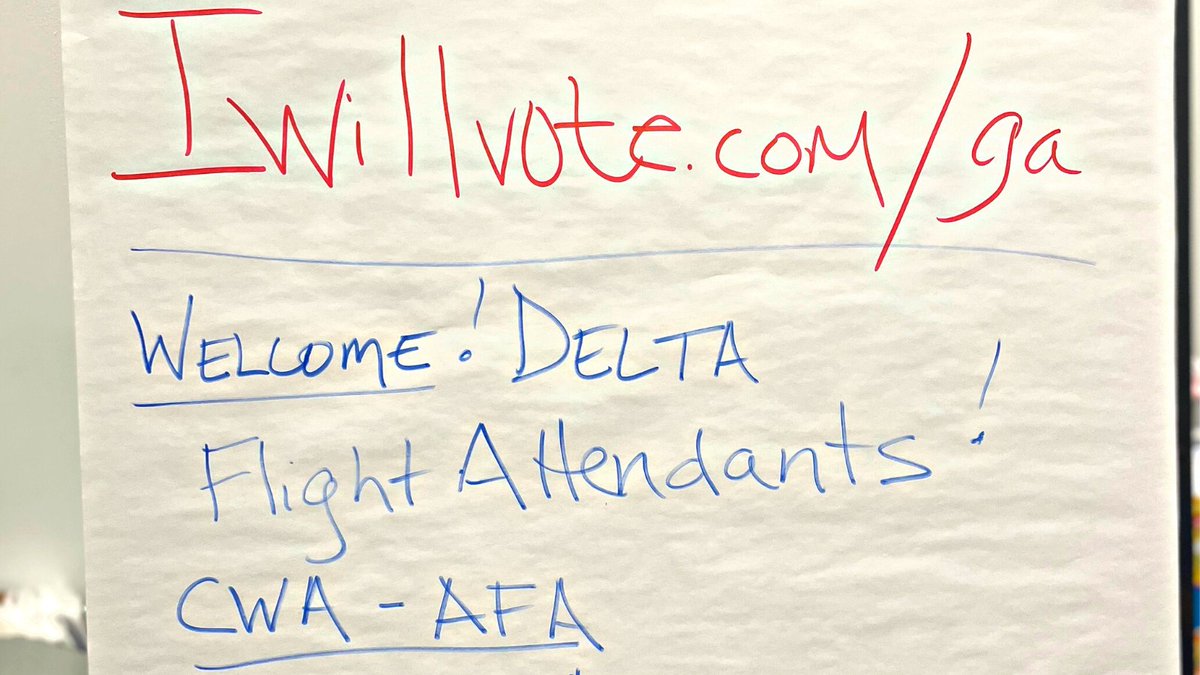 Iwillvote.com/ga
WELCOME! DELTA
Flight Attendants!
CWA - AFA